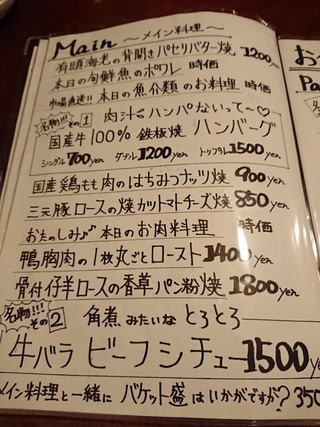 Main ～メイン料理～
有頭海老の背開きパセリバター焼 1200
本日の旬鮮魚のポワレ 時価
市場直送!! 本日の魚介類のお料理 時価
名物!!! その1 肉汁がハンパないって～♡
国産牛100% 鉄板焼 ハンバーグ
シングル700yen ダブル1200yen トリプル1500yen
国産鶏もも肉のはちみつナッツ焼 900yen
三元豚ロースの焼カットマトチーズ焼 850yen
おたのしみ♪ 本日のお肉料理 時価
鴨胸肉の1枚丸ごとロースト 1400yen
骨付仔羊ロースの香草パン粉焼 1800yen
名物!!! その2 角煮みたいな とろとろ
牛バラ ビーフシチュー 1500ye
メイン料理と一緒に バケット盛はいかがですか? 350
お
Pa